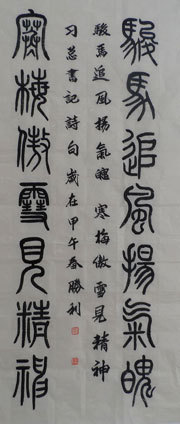 駿馬追風揚氣魄
寒梅傲雪見精神
駿馬追風揚氣魄 寒梅傲雪見精神
習總書記詩句歲在甲午春勝利